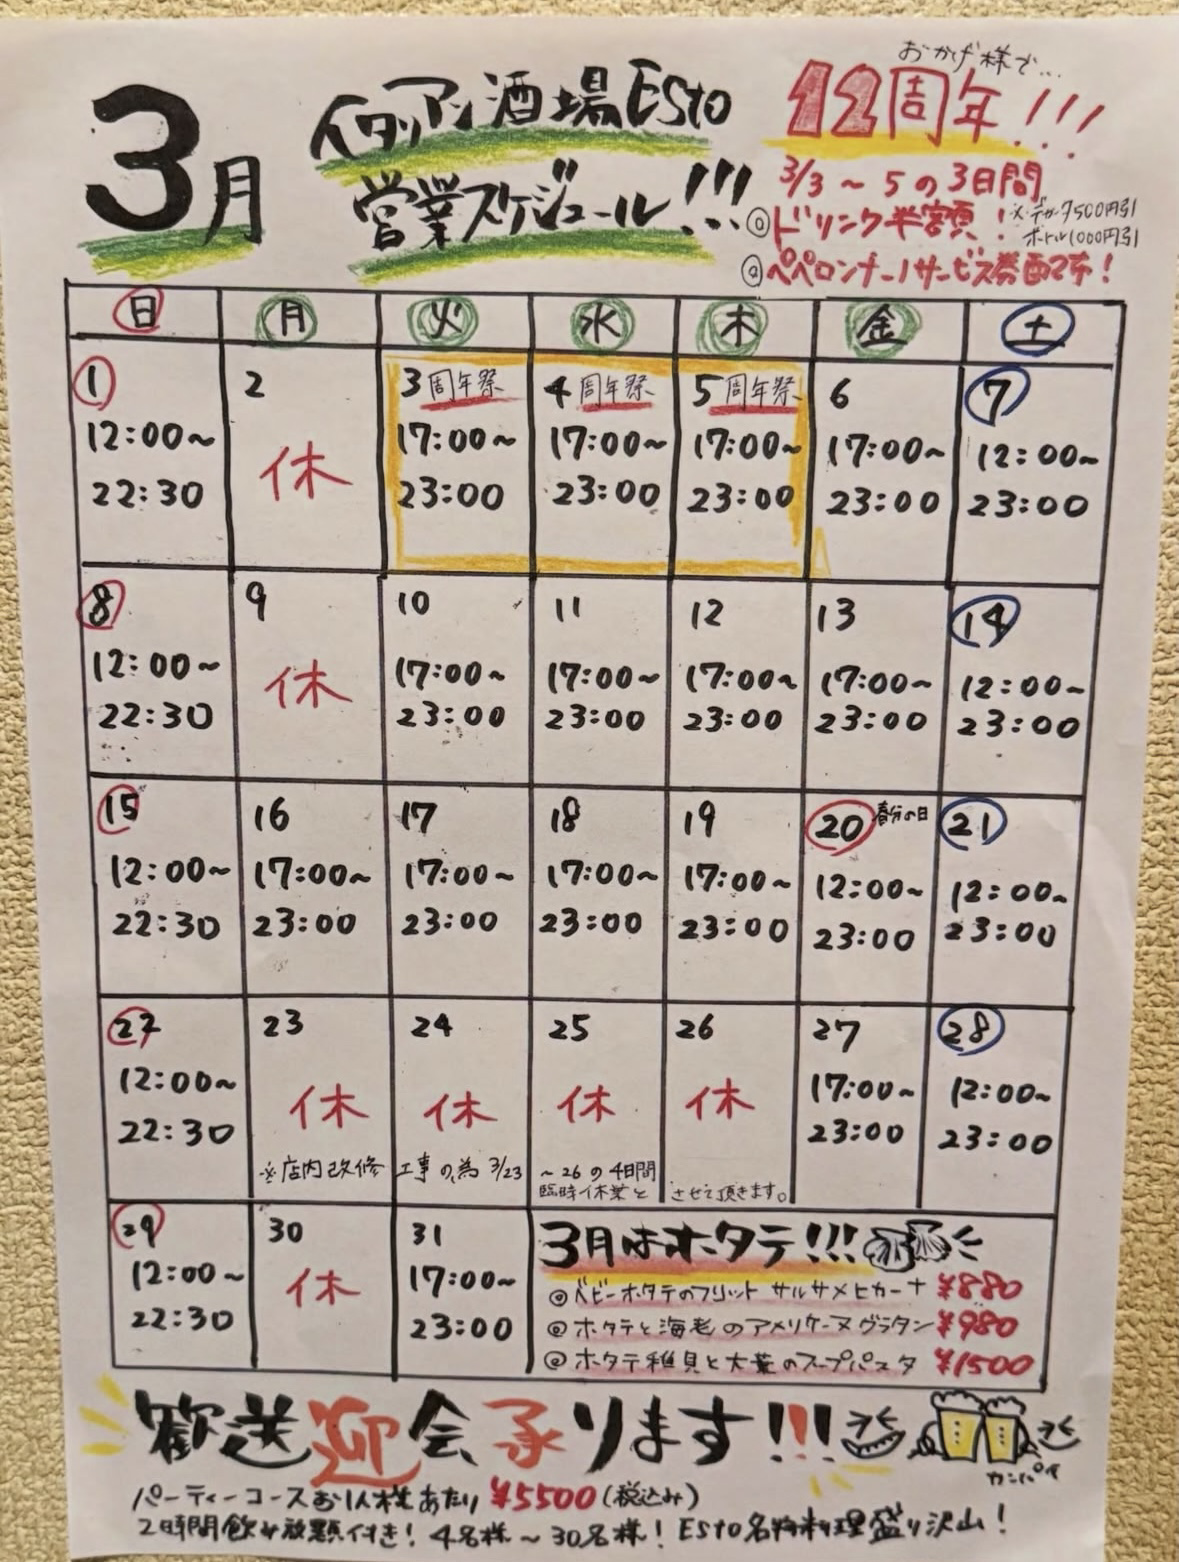 3月
イタリアン酒場Esto
営業スケジュール!!!
おかげ様で...
12周年!!!
3/3～5の3日間
◎ドリンク半額!
※デカンタ500円引
ボトル1000円引
◎ペペロンチーノサービス券配布!
日 月 火 水 木 金 土
1 2 3 周年祭 4 周年祭 5 周年祭 6 7
12:00~ 休 17:00~ 17:00~ 17:00~ 17:00~ 12:00~
22:30 23:00 23:00 23:00 23:00 23:00
8 9 10 11 12 13 14
12:00~ 休 17:00~ 17:00~ 17:00~ 17:00~ 12:00~
22:30 23:00 23:00 23:00 23:00 23:00
15 16 17 18 19 20 春分の日 21
12:00~ 17:00~ 17:00~ 17:00~ 17:00~ 12:00~ 12:00~
22:30 23:00 23:00 23:00 23:00 23:00 23:00
22 23 24 25 26 27 28
12:00~ 休 休 休 休 17:00~ 12:00~
22:30 23:00 23:00
※店内改修工事の為 3/23～26の4日間
臨時休業とさせて頂きます。
29 30 31
12:00~ 休 17:00~
22:30 23:00
3月はホタテ!!!
◎ベビーホタテのフリット サルサメヒカーナ ¥880
◎ホタテと海老のアメリケーヌグラタン ¥980
◎ホタテ稚貝と大葉のスープパスタ ¥1500
歓送迎会承ります!!!
カンパイ
パーティーコースお1人様あたり ¥5500(税込み)
2時間飲み放題付き! 4名様～30名様! Esto名物料理盛り沢山!